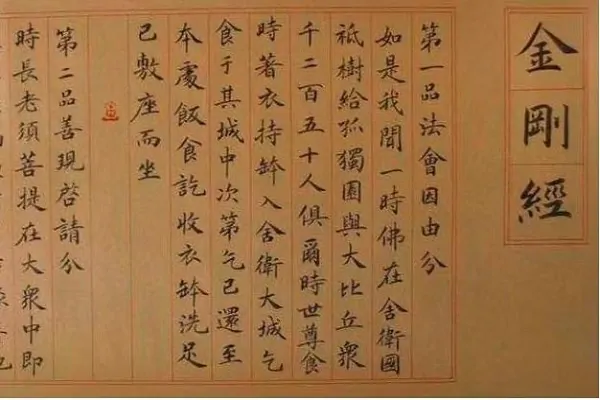 金剛經
第一品法會因由分
如是我聞一時佛在舍衛國
祗樹給孤獨園與大比丘衆
千二百五十人俱爾時世尊食
時著衣持鉢入舍衛大城乞
食于其城中次第乞已還至
本處飯食訖收衣鉢洗足
已敷座而坐
第二品善現啓請分
時長老須菩提在大衆中即